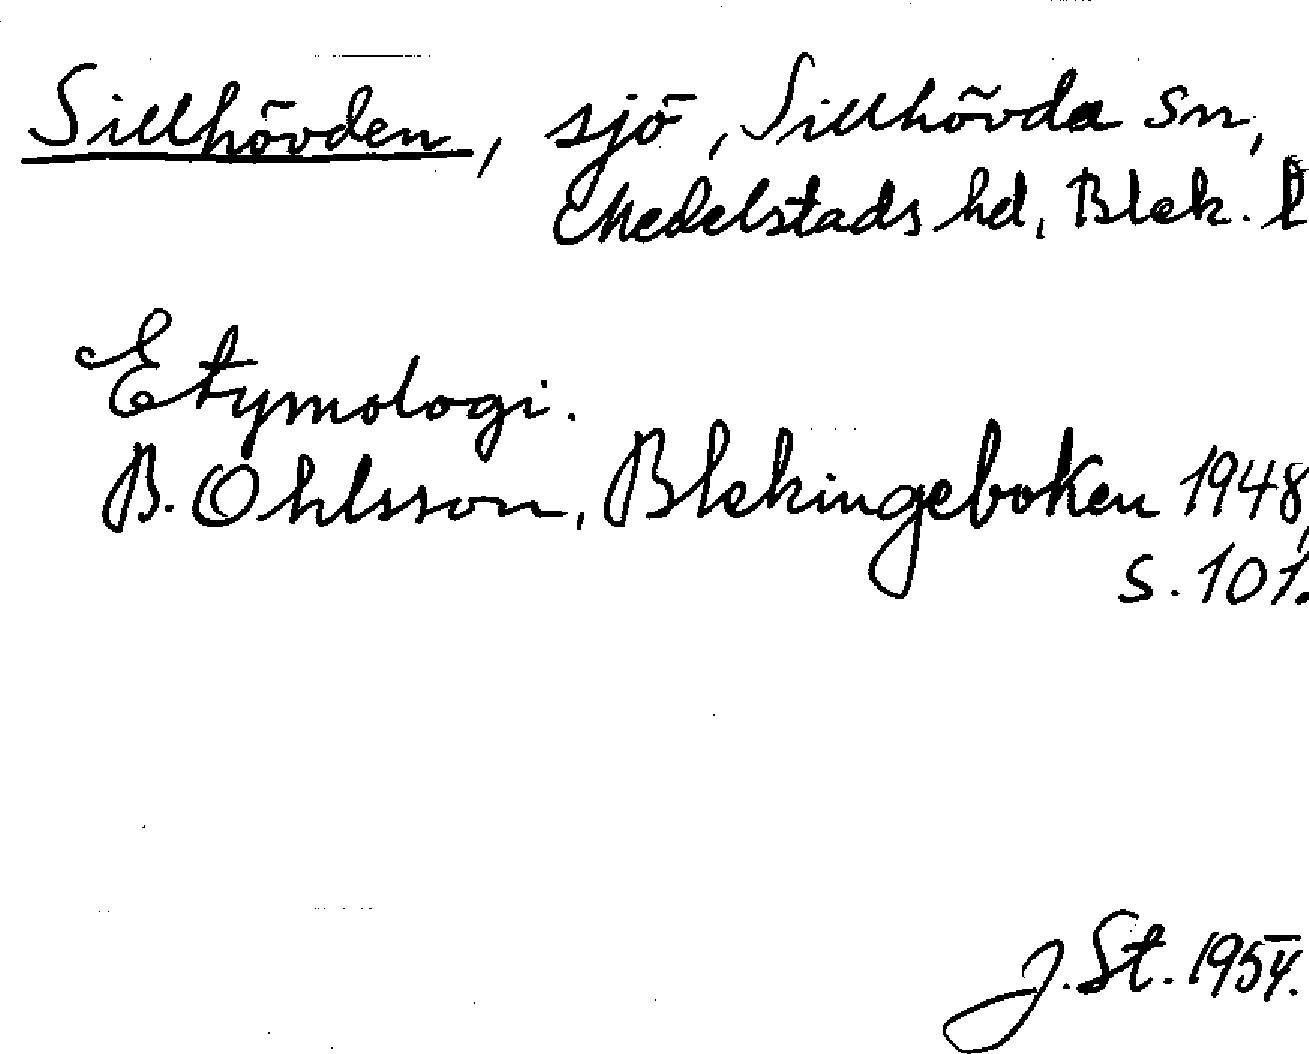 Sillhövden, sjö, Sillhövda sn,
Medelstads hd, Blek. l
Etymologi.
B. Ohlsson, Blekingeboken 1948,
s. 101.
J. St. 1954.